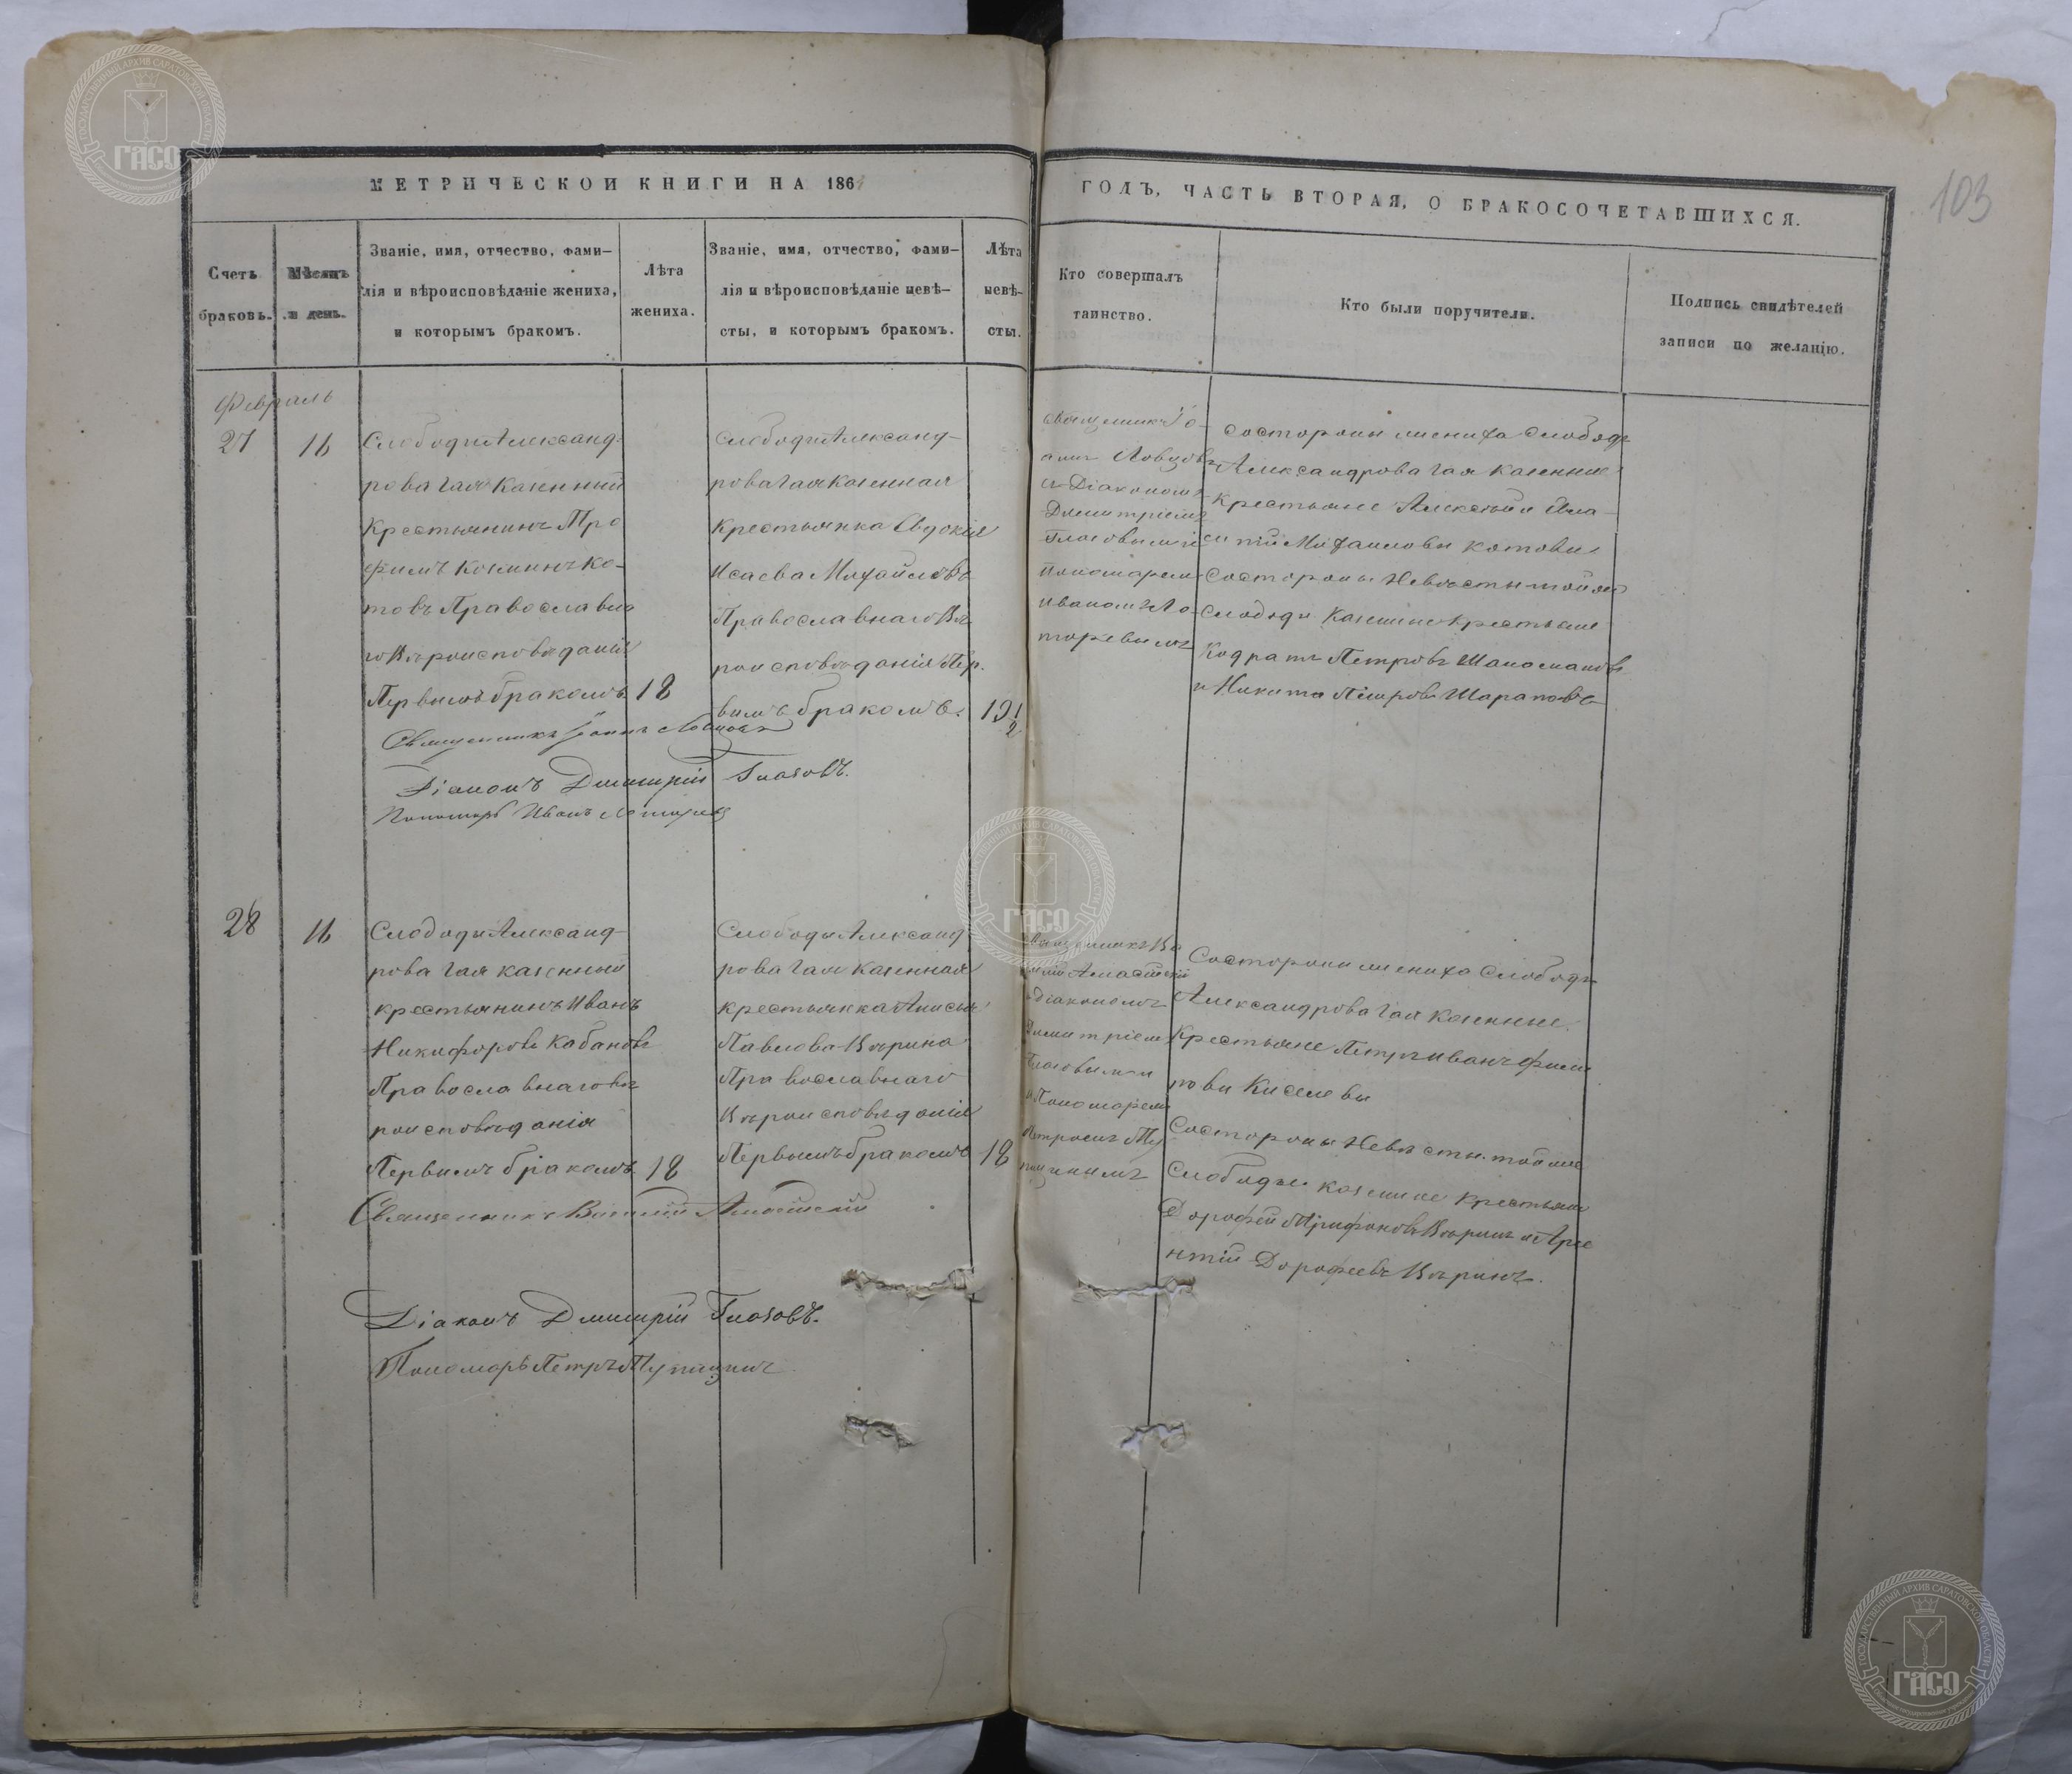 МЕТРИЧЕСКОЙ КНИГИ НА 186
ГОДЪ, ЧАСТЬ ВТОРАЯ, О БРАКОСОЧЕТАВШИХСЯ.
103
Счетъ
браковъ.
Мѣсяцъ
и день.
Званіе, имя, отчество, фами-
лія и вѣроисповѣданіе жениха,
и которымъ бракомъ.
Лѣта
жениха.
Званіе, имя, отчество, фами-
лія и вѣроисповѣданіе невѣ-
сты, и которымъ бракомъ.
Лѣта
невѣ-
сты.
Кто совершалъ
таинство.
Кто были поручители.
Подпись свидѣтелей
записи по желанію.
Февраль
27
16
Слободы Александ-
рова Гая Казенный
Крестьянинъ Тро
фимъ Козминъ Ко-
товъ Православна
го Вѣроисповѣданія
Первымъ бракомъ
18
Слободы Александ-
рова Гая Казенная
Крестьянка Евдокія
Исаева Михайлова
Православнаго Вѣ
роисповѣданія Пер.
вымъ бракомъ.
19 1/2
Священникъ Іо-
аннъ Ловцовъ
съ Діакономъ
Димитріемъ
Глазовымъ и
Пономаремъ
Иваномъ
Состороны жениха Слободы
Александрова Гая казенные
крестьяне Алексѣй и
Михайловы Котовы
Состороны Невѣсты тойже
Слободы Казенные крестьяне
Кодратъ Петровъ
и Никита Петровъ Шараповъ
Священникъ Іоаннъ Ловцовъ
Діаконъ Димитрій Глазовъ.
Пономарь Иванъ
28
16
Слободы Александ-
рова Гая казенный
крестьянинъ Иванъ
Никифоровъ Кабановъ
Православнаго вѣ
роисповѣданія
Первымъ бракомъ
18
Слободы Александ
рова Гая Казенная
крестьянка Анисья
Павлова Вѣрина
Православнаго
Вѣроисповѣданія
Первымъ бракомъ
18
Священникъ Ва
силій
Діакономъ
Димитріемъ
Глазовымъ
и Пономаремъ
Петромъ
Состороны жениха Слободы
Александрова Гая Казенные
Крестьяне Петръ Иванъ Филип
повы Киселевы
Состороны Невѣсты тойже
Слободы казенные крестьяне
Дорофей Трифоновъ Вѣринъ и Арсе
нтій Дорофеевъ Вѣринъ.
Священникъ Василій
Діаконъ Димитрій Глазовъ.
Пономарь Петръ
ГАСО